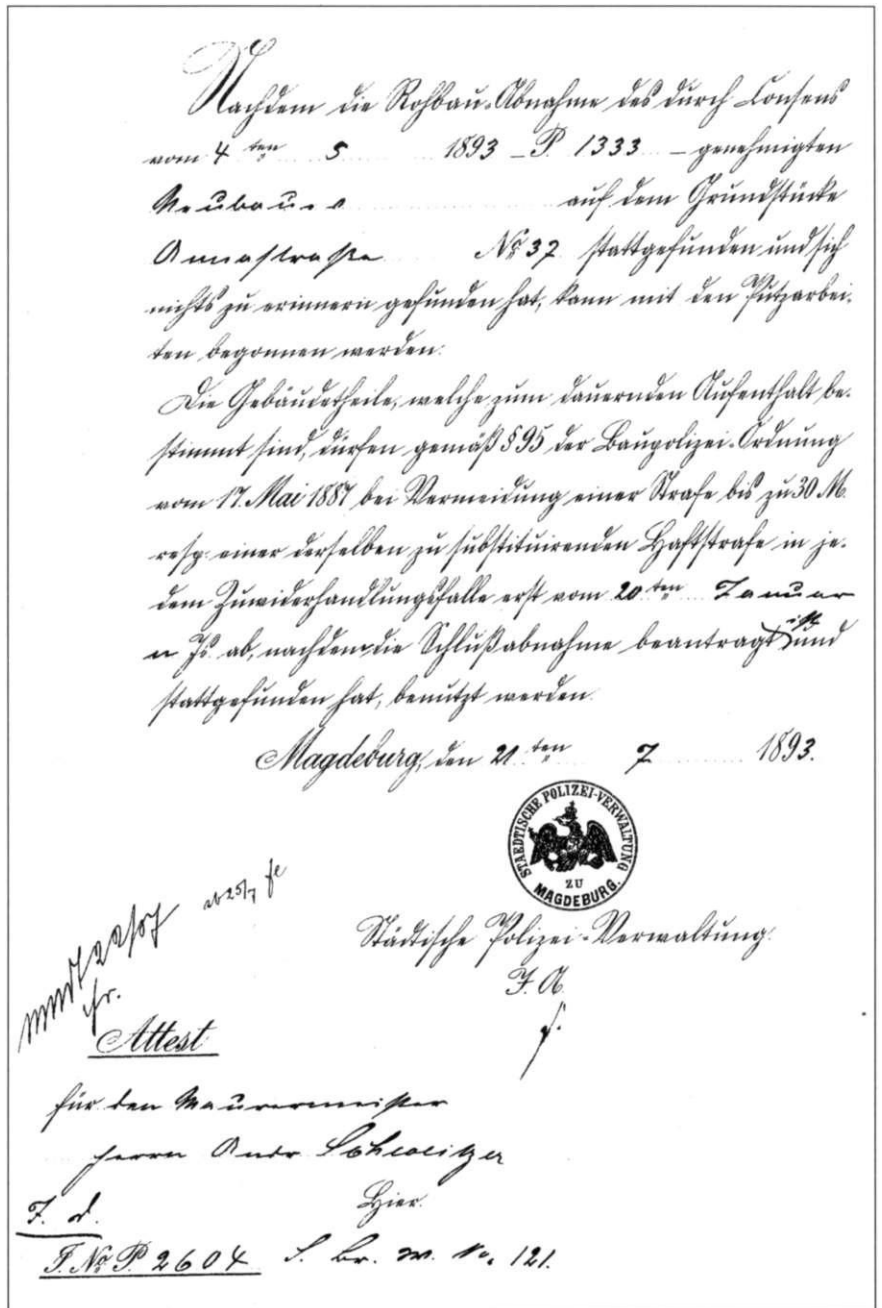 Nachdem die Rohbau-Abnahme des durch Consens
vom 4 ten 5 1893 – P. 1333 – genehmigten
Neubaues auf dem Grundstücke
Annastraße No 37 stattgefunden und sich
nichts zu erinnern gefunden hat, kann mit den Putzarbei-
ten begonnen werden.
Die Gebäudetheile, welche zum dauernden Aufenthalt be-
stimmt sind, dürfen gemäß § 95 der Baupolizei-Ordnung
vom 17. Mai 1887 bei Vermeidung einer Strafe bis zu 30 M.
resp. einer derselben zu substituirenden Haftstrafe in je-
dem Zuwiderhandlungsfalle erst vom 20 ten Januar
n Js. ab, nachdem die Schlußabnahme beantragt ist und
stattgefunden hat, benutzt werden.
Magdeburg, den 21 ten 7 1893.
STAEDTISCHE POLIZEI-VERWALTUNG
ZU
MAGDEBURG.
Städtische Polizei-Verwaltung.
J. A.
ab 25/7
Attest
für den Maurermeister
Herrn Andr Schweitzer
Hier.
J. No P. 2604 No. 121.